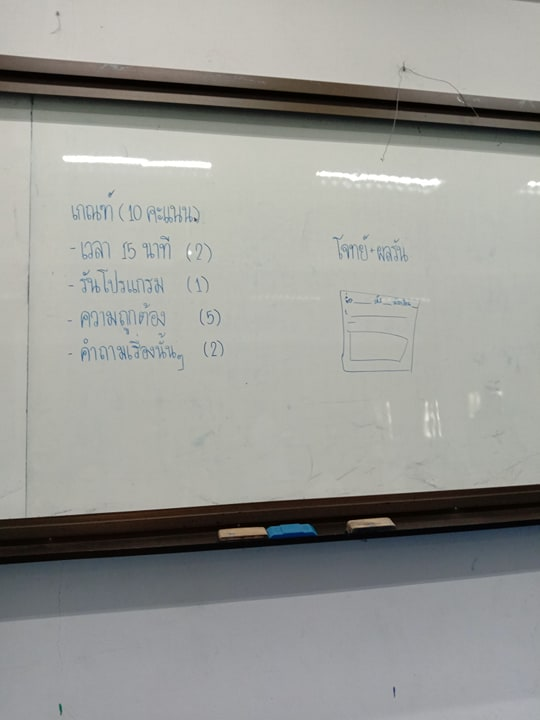 เกณฑ์ (10 คะแนน)
- เวลา 15 นาที (2)
- รันโปรแกรม (1)
- ความถูกต้อง (5)
- คำถามเรื่องนั้นๆ (2)
โจทย์ + ผลรัน
1.